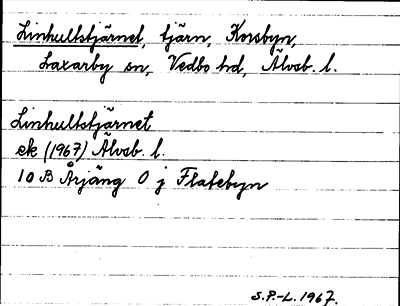 Linhultstjärnet, tjärn, Korsbyn,
Laxarby sn, Vedbo hd, Älvsb. l.
Linhultstjärnet
ek (1967) Älvsb. l.
10 B Årjäng O j Flatebyn
S.P.-L. 1967.